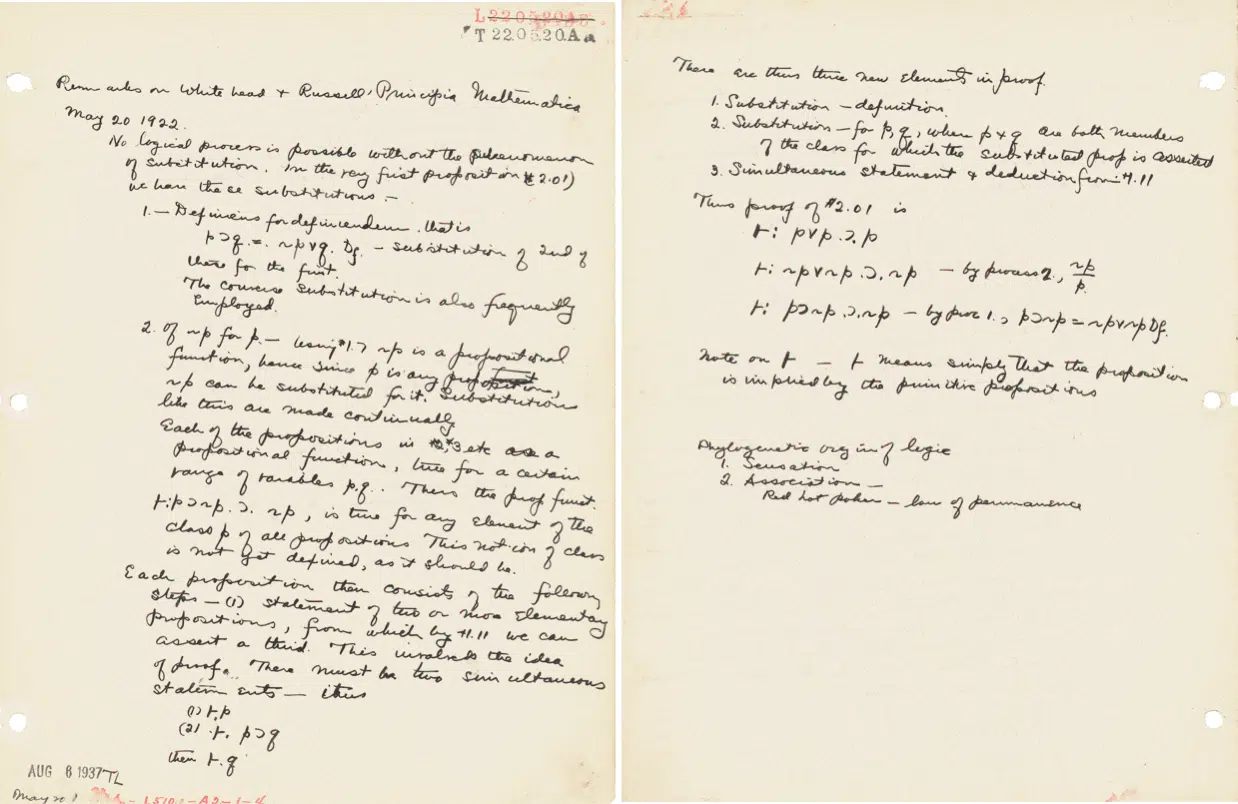 L220520A
T 220520Aa
Remarks on Whitehead & Russell, Principia Mathematica
May 20 1922.
No logical process is possible without the phenomenon
of substitution. In the very first proposition (*2.01)
we have these substitutions –
1. – Definiens for definiendum. that is
p⊃q .=. ~p∨q. Df. – substitution of 2nd of
these for the first.
The converse substitution is also frequently
employed.
2. Of ~p for p. – Using *1.7 ~p is a propositional
function, hence since p is any proposition,
~p can be substituted for it. Substitutions
like this are made continually
Each of the propositions in *2, *3 etc a
propositional function, true for a certain
range of variables p.q.. Thus the prop funct.
⊢:p⊃~p.⊃. ~p, is true for any element of the
class p of all propositions This notion of class
is not yet defined, as it should be.
Each proposition then consists of the following
steps – (1) statement of two or more elementary
propositions, from which by *1.11 we can
assert a third. This involves the idea
of proof. There must be two simultaneous
statements – thus
(1) ⊢.p
(2) ⊢. p⊃q
then ⊢.q
AUG 6 1937 TL
May 20
L510.1-A2-1-4
There are thus three new elements in proof.
1. Substitution – definition.
2. Substitution – for p, q, where p & q are both members
of the class for which the substituted prop is asserted
3. Simultaneous statement & deduction from *1.11
Thus proof of *2.01 is
⊢: p∨p.⊃.p
⊢: ~p∨~p.⊃.~p – by process 2, ~p/p.
⊢: p⊃~p.⊃.~p – by proc 1., p⊃~p = ~p∨~p Df.
Note on ⊢ – ⊢ means simply that the proposition
is implied by the primitive propositions
Phylogenetic origin of logic
1. Sensation
2. Association –
Red hot poker – law of permanence